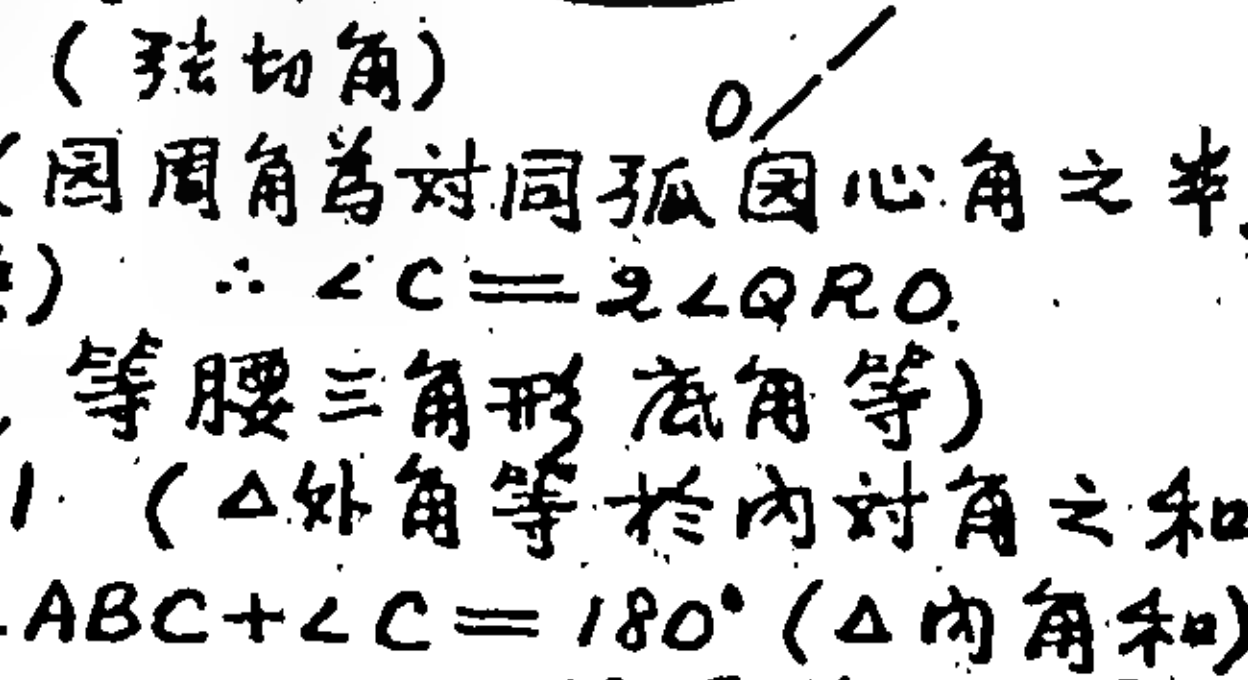 (弦切角)
O
(圆周角為对同弧圆心角之半,
) ∴ ∠C=2∠QRO.
, 等腰三角形底角等)
1 (△外角等於內对角之和
ABC+∠C=180° (△內角和)